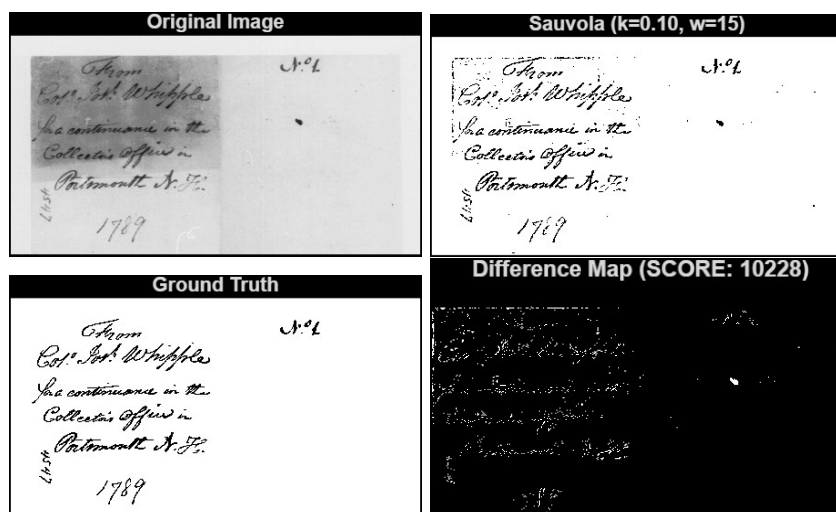 Original Image
From
Colo. Josh. Whipple
for a continuance in the
Collector's Office in
Portsmouth N. H.
1789
No. 1
Sauvola (k=0.10, w=15)
From
Colo. Josh. Whipple
for a continuance in the
Collector's Office in
Portsmouth N. H.
1789
No. 1
Ground Truth
From
Colo. Josh. Whipple
for a continuance in the
Collector's Office in
Portsmouth N. H.
1789
No. 1
Difference Map (SCORE: 10228)